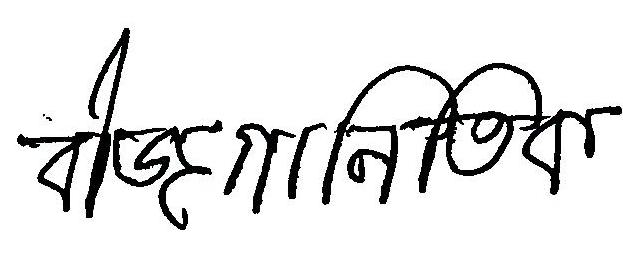 বীজগানিতিক